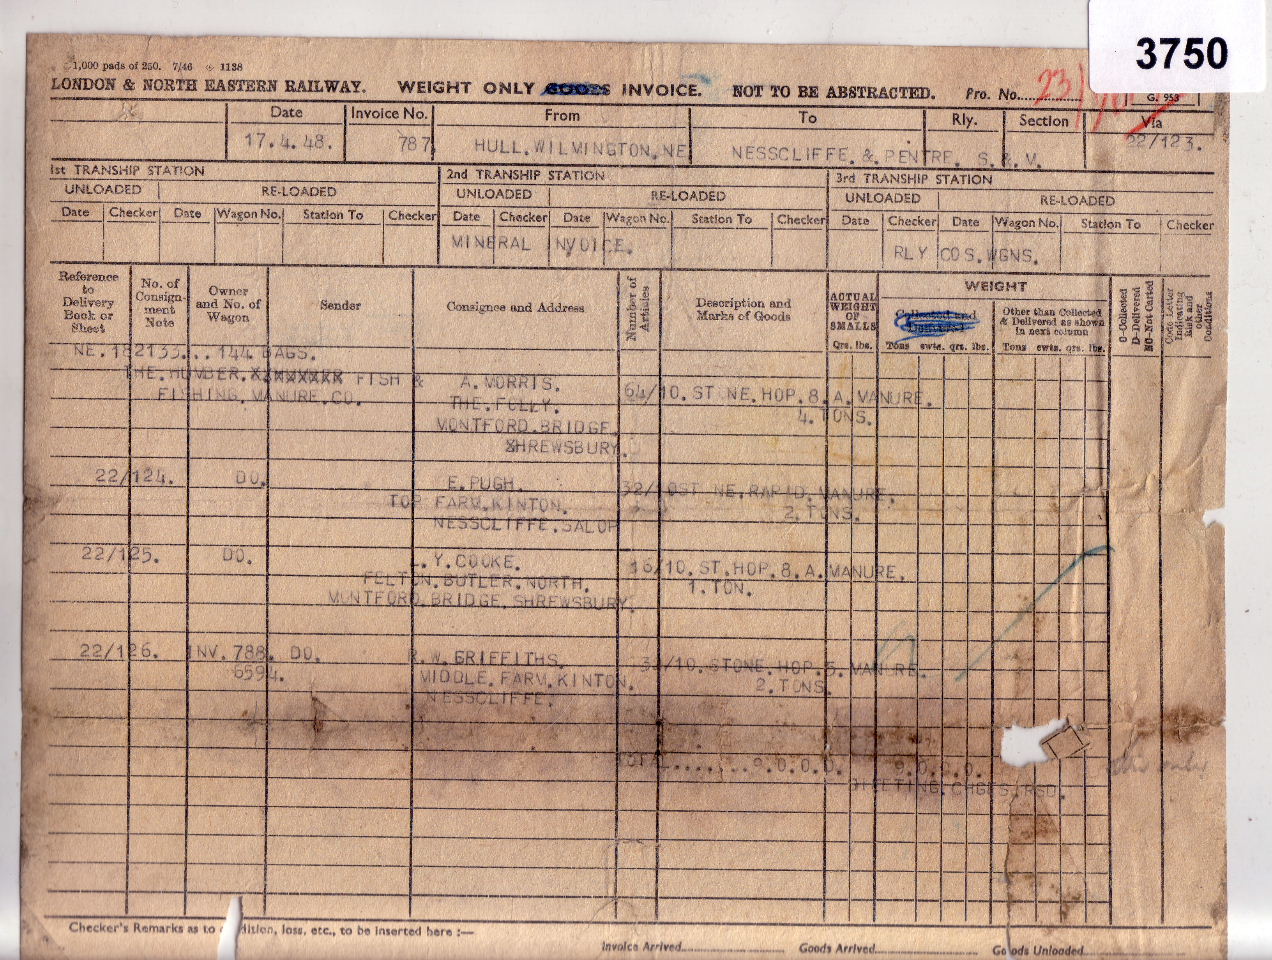 3750
1,000 pads of 250. 7/46 1138
LONDON & NORTH EASTERN RAILWAY. WEIGHT ONLY GOODS INVOICE. NOT TO BE ABSTRACTED. Pro. No. 23/
G. 953
Date Invoice No. From To Rly. Section Via
17.4.48. 787 HULL.WILMINGTON.NE NESSCLIFFE.&.PENTRE. S.&.M. 22/123.
1st TRANSHIP STATION 2nd TRANSHIP STATION 3rd TRANSHIP STATION
UNLOADED RE-LOADED UNLOADED RE-LOADED UNLOADED RE-LOADED
Date Checker Date Wagon No. Station To Checker Date Checker Date Wagon No. Station To Checker Date Checker Date Wagon No. Station To Checker
MINERAL INVOICE. RLY COS.WGNS.
Reference to Delivery Book or Sheet
No. of Consignment Note
Owner and No. of Wagon
Sender
Consignee and Address
Number of Articles
Description and Marks of Goods
ACTUAL WEIGHT OF SMALLS
Qrs. lbs.
WEIGHT
Collected and Delivered
Tons cwts. qrs. lbs.
Other than Collected & Delivered as shown in next column
Tons cwts. qrs. lbs.
C-Collected D-Delivered NO-Not Carted
Code Letter Indicating Risk and other Conditions
NE.182133...144 BAGS.
THE.HUMBER. FISH & A.MORRIS. 64/10.STONE.HOP.8.A.MANURE.
FISHING.MANURE.CO. THE.FOLLY. 4.TONS.
MONTFORD.BRIDGE.
SHREWSBURY.
22/124. DO. E.PUGH. 32/10ST NE.RAPID.MANURE.
TOP FARM.KINTON. 2.TONS.
NESSCLIFFE.SALOP
22/125. DO. L.Y.COOKE. 16/10.ST.HOP.8.A.MANURE.
FELTON.BUTLER.NORTH. 1.TON.
MONTFORD.BRIDGE.SHREWSBURY.
22/126. INV.788. DO. R.W.GRIFFITHS. 32/10.STONE.HOP.5.MANURE.
6594. MIDDLE.FARM.KINTON. 2.TONS.
NESSCLIFFE.
TOTAL.......9.0.0.0. 9.0.0.0.
SHEETING.CHGES.PSD.
Checker's Remarks as to condition, loss, etc., to be inserted here :—
Invoice Arrived Goods Arrived Goods Unloaded